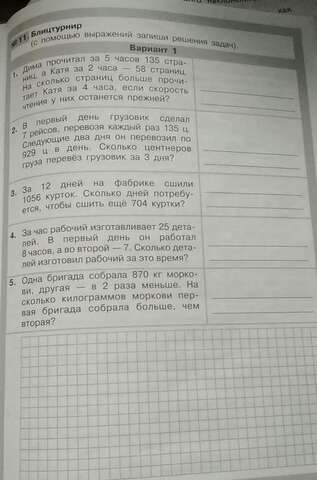 как
№ 11. Блицтурнир
(с помощью выражений запиши решения задач).
Вариант 1
1. Дима прочитал за 5 часов 135 стра-
ниц, а Катя за 2 часа — 58 страниц.
На сколько страниц больше прочи-
тает Катя за 4 часа, если скорость
чтения у них останется прежней?
2. В первый день грузовик сделал
7 рейсов, перевозя каждый раз 135 ц.
Следующие два дня он перевозил по
929 ц в день. Сколько центнеров
груза перевёз грузовик за 3 дня?
3. За 12 дней на фабрике сшили
1056 курток. Сколько дней потребу-
ется, чтобы сшить ещё 704 куртки?
4. За час рабочий изготавливает 25 дета-
лей. В первый день он работал
8 часов, а во второй — 7. Сколько дета-
лей изготовил рабочий за это время?
5. Одна бригада собрала 870 кг морко-
ви, другая — в 2 раза меньше. На
сколько килограммов моркови пер-
вая бригада собрала больше, чем
вторая?